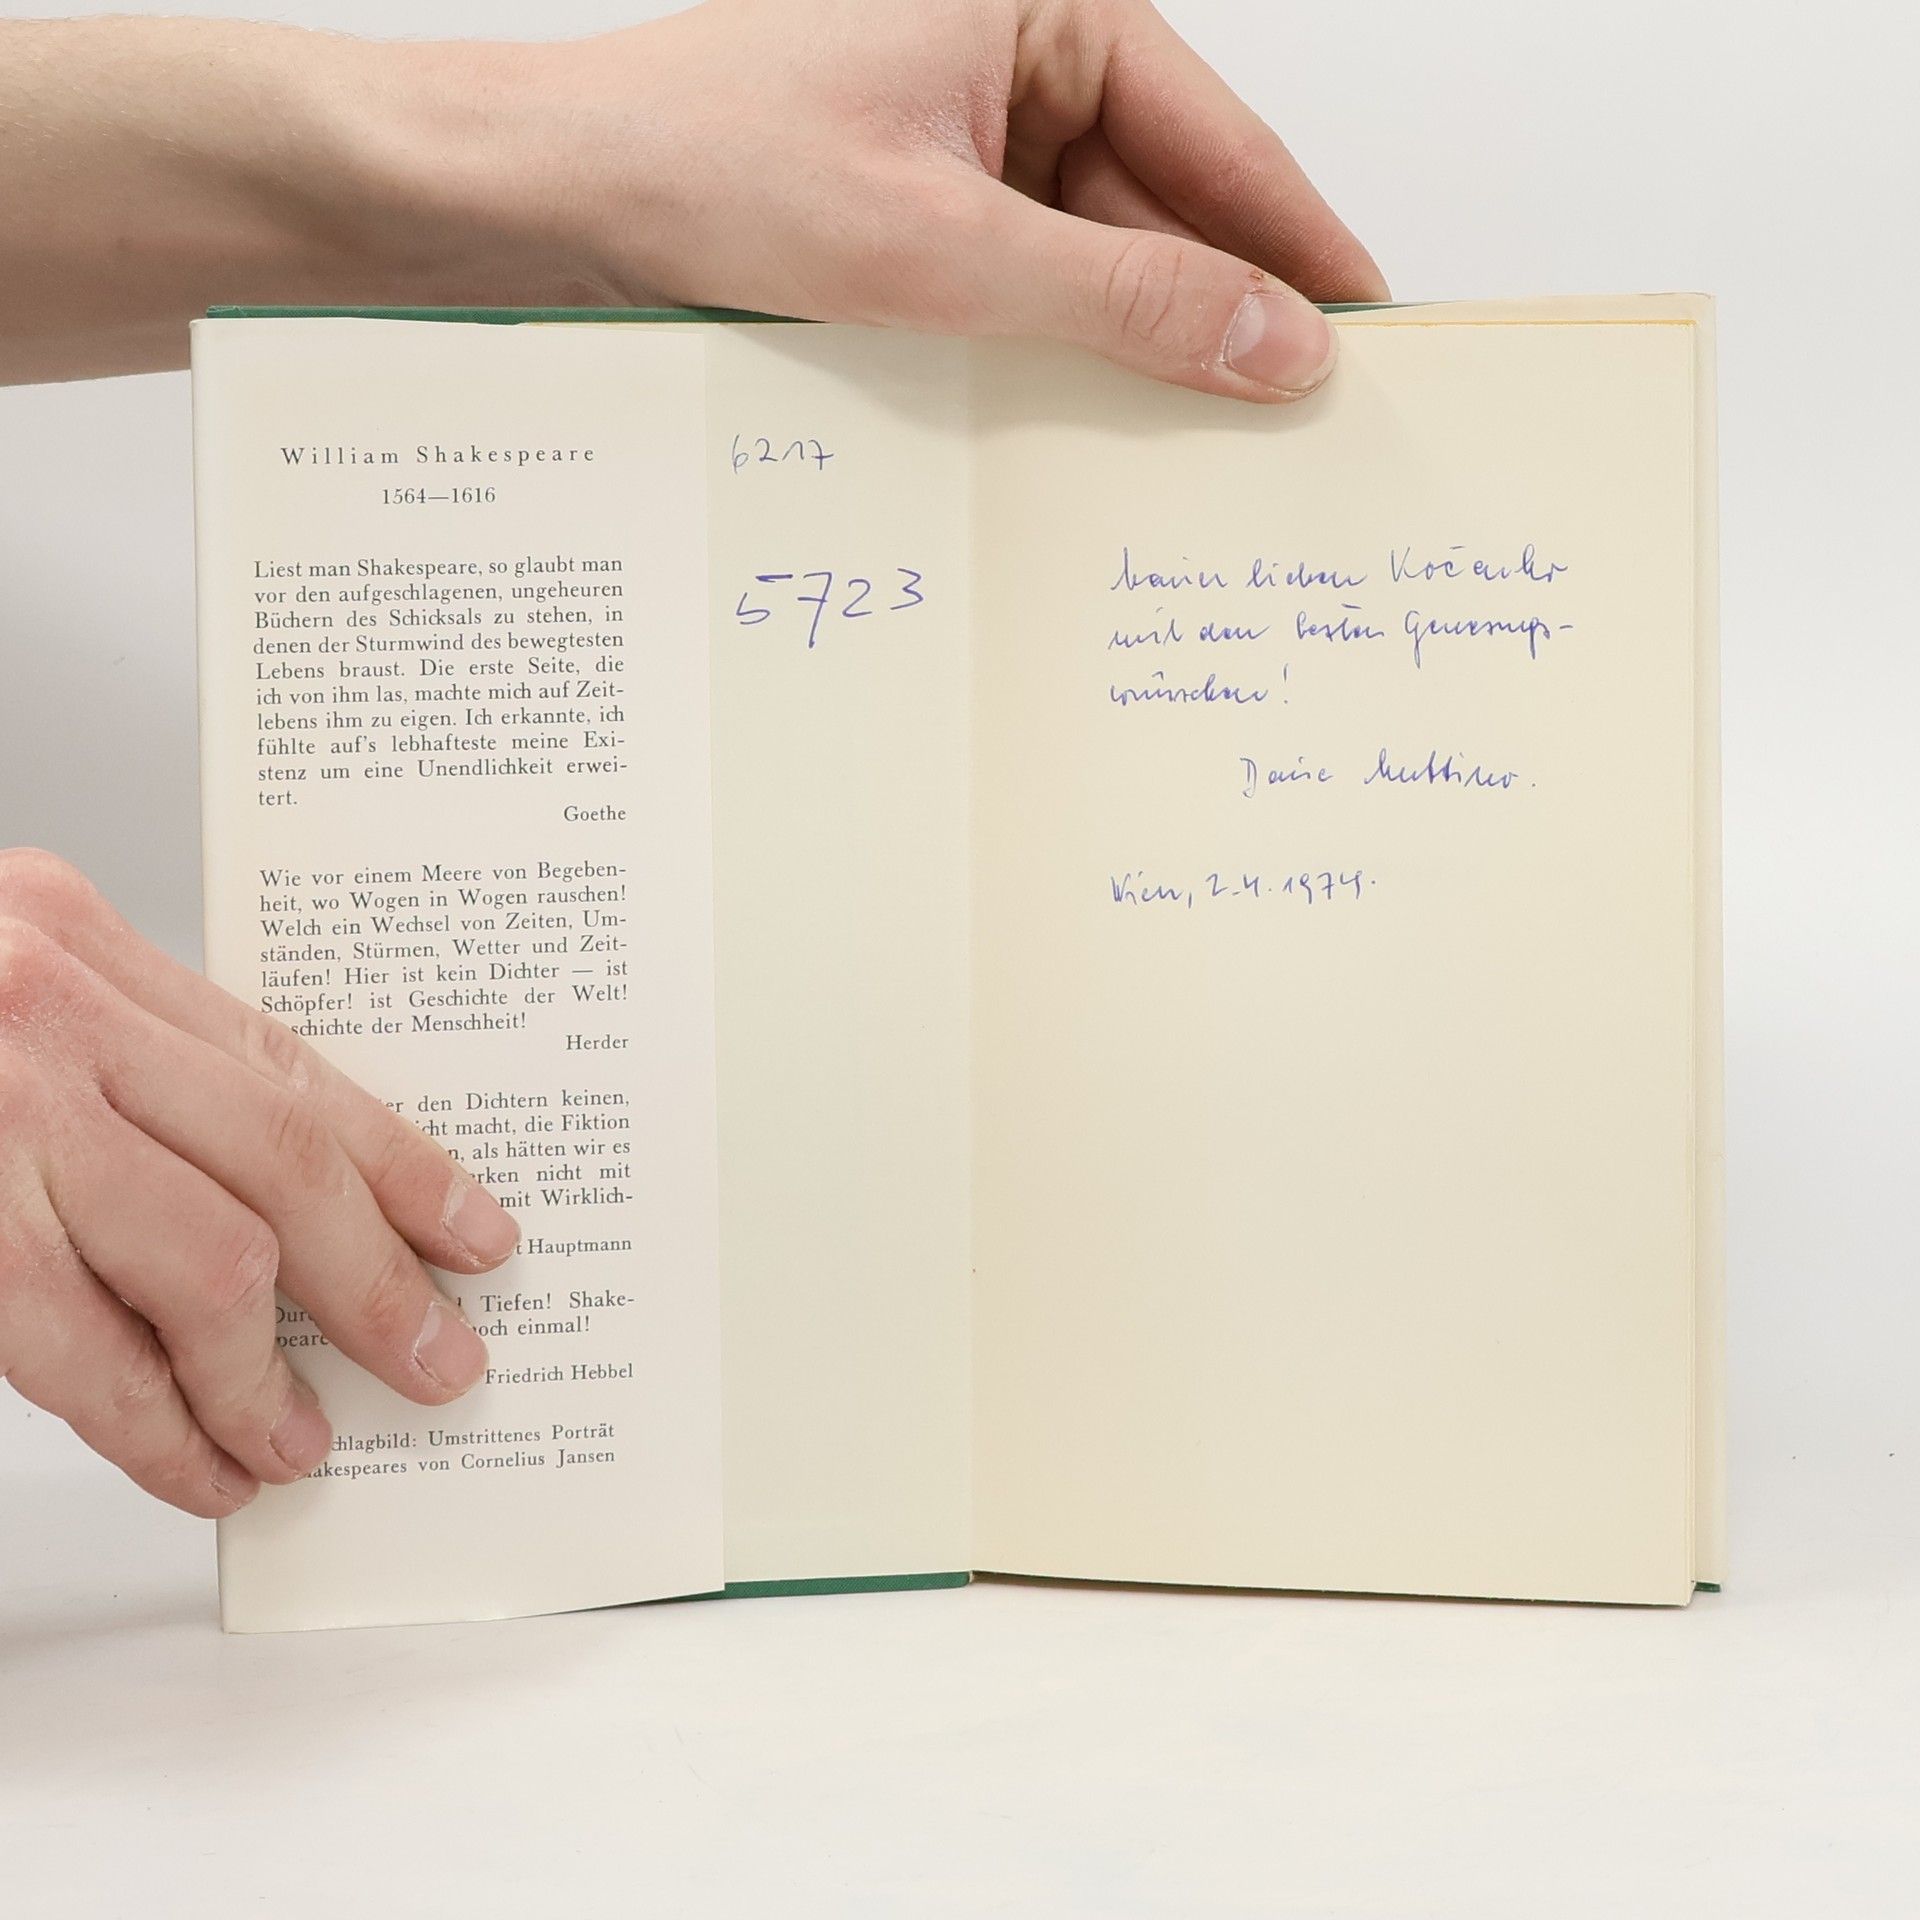 William Shakespeare
1564—1616
Liest man Shakespeare, so glaubt man
vor den aufgeschlagenen, ungeheuren
Büchern des Schicksals zu stehen, in
denen der Sturmwind des bewegtesten
Lebens braust. Die erste Seite, die
ich von ihm las, machte mich auf Zeit-
lebens ihm zu eigen. Ich erkannte, ich
fühlte auf's lebhafteste meine Exi-
stenz um eine Unendlichkeit erwei-
tert.
Goethe
Wie vor einem Meere von Begeben-
heit, wo Wogen in Wogen rauschen!
Welch ein Wechsel von Zeiten, Um-
ständen, Stürmen, Wetter und Zeit-
läufen! Hier ist kein Dichter — ist
Schöpfer! ist Geschichte der Welt!
schichte der Menschheit!
Herder
er den Dichtern keinen,
cht macht, die Fiktion
n, als hätten wir es
rken nicht mit
mit Wirklich-
t Hauptmann
Tiefen! Shake-
peare och einmal!
Friedrich Hebbel
chlagbild: Umstrittenes Porträt
akespeares von Cornelius Jansen
6217
5723
lieben
mit den besten Genesungs-
wünschen!
Wien, 2.4.1974.